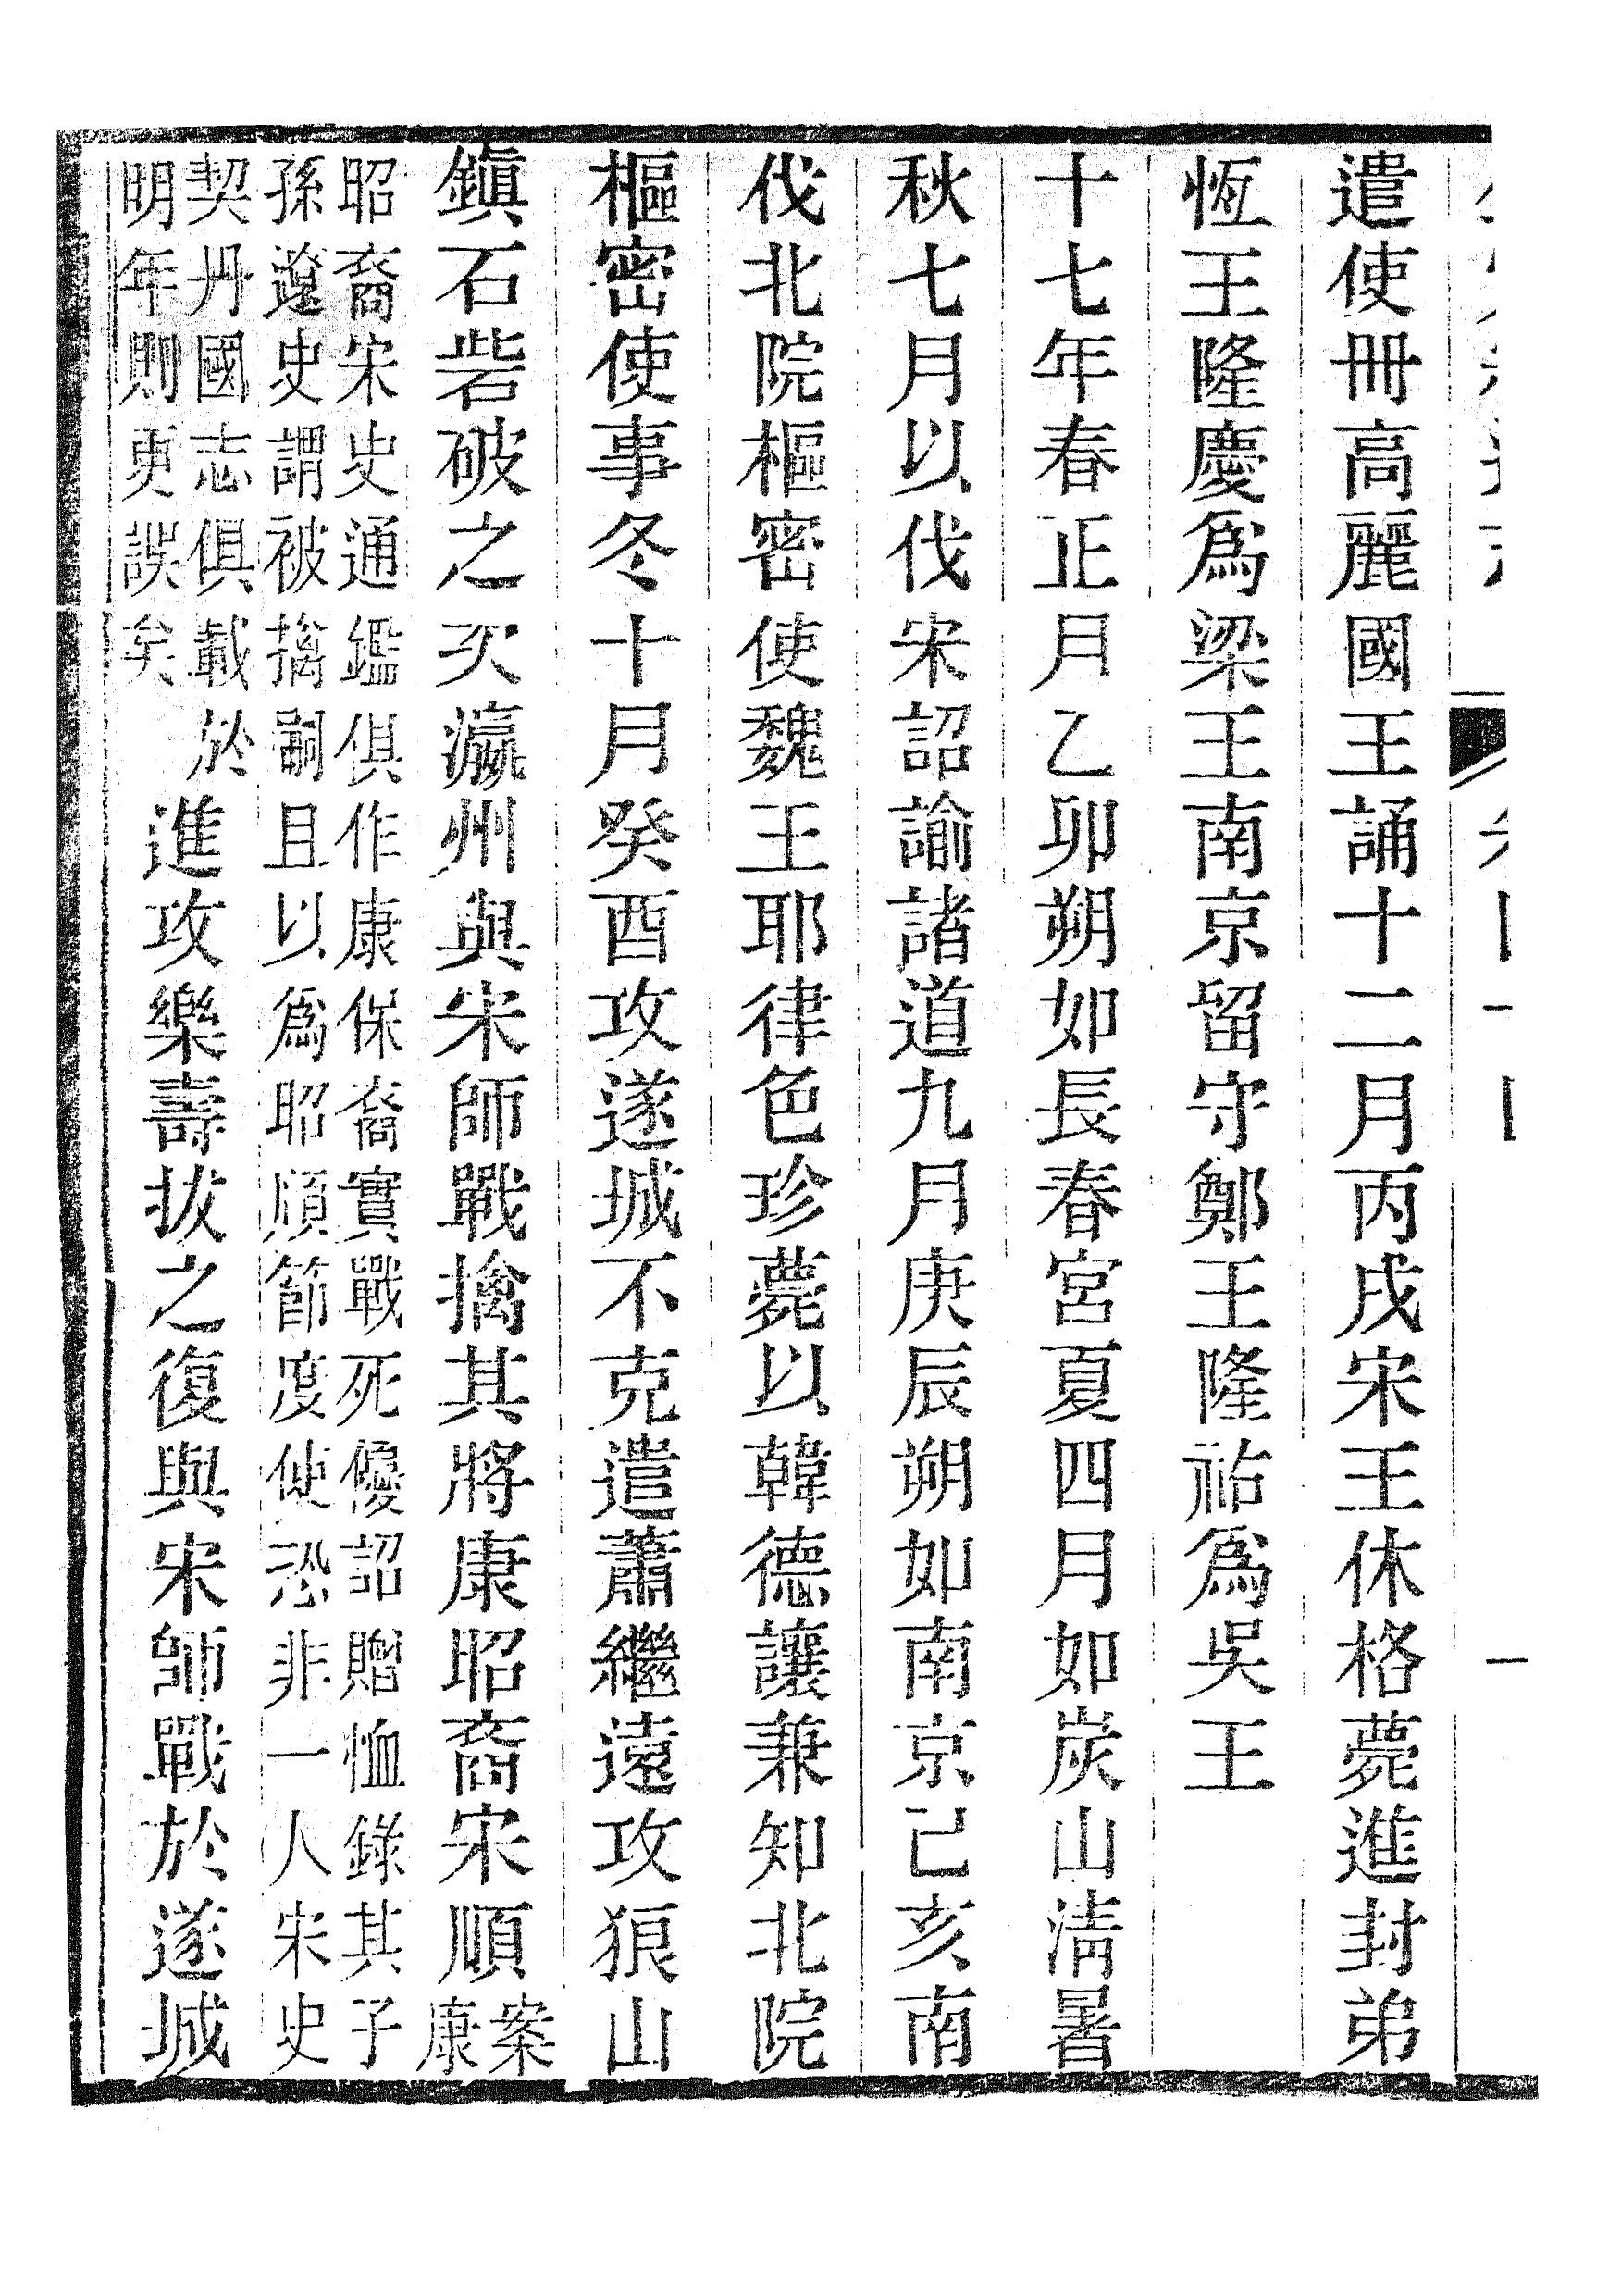 遣使冊高麗國王誦十二月丙戌宋王休格薨進封弟
恆王隆慶爲梁王南京留守鄭王隆祐爲吳王
十七年春正月乙卯朔如長春宮夏四月如炭山淸暑
秋七月以伐宋詔諭諸道九月庚辰朔如南京己亥南
伐北院樞密使魏王耶律色珍薨以韓德讓兼知北院
樞密使事冬十月癸酉攻遂城不克遣蕭繼遠攻狼山
鎭石砦破之次瀛州與宋師戰擒其將康昭裔宋順案康
昭裔宋史通鑑俱作康保裔實戰死優詔贈恤錄其子
孫遼史謂被擒嗣且以爲昭順節度使恐非一人宋史
契丹國志俱載於
明年則更誤矣
進攻樂壽拔之復與宋師戰於遂城